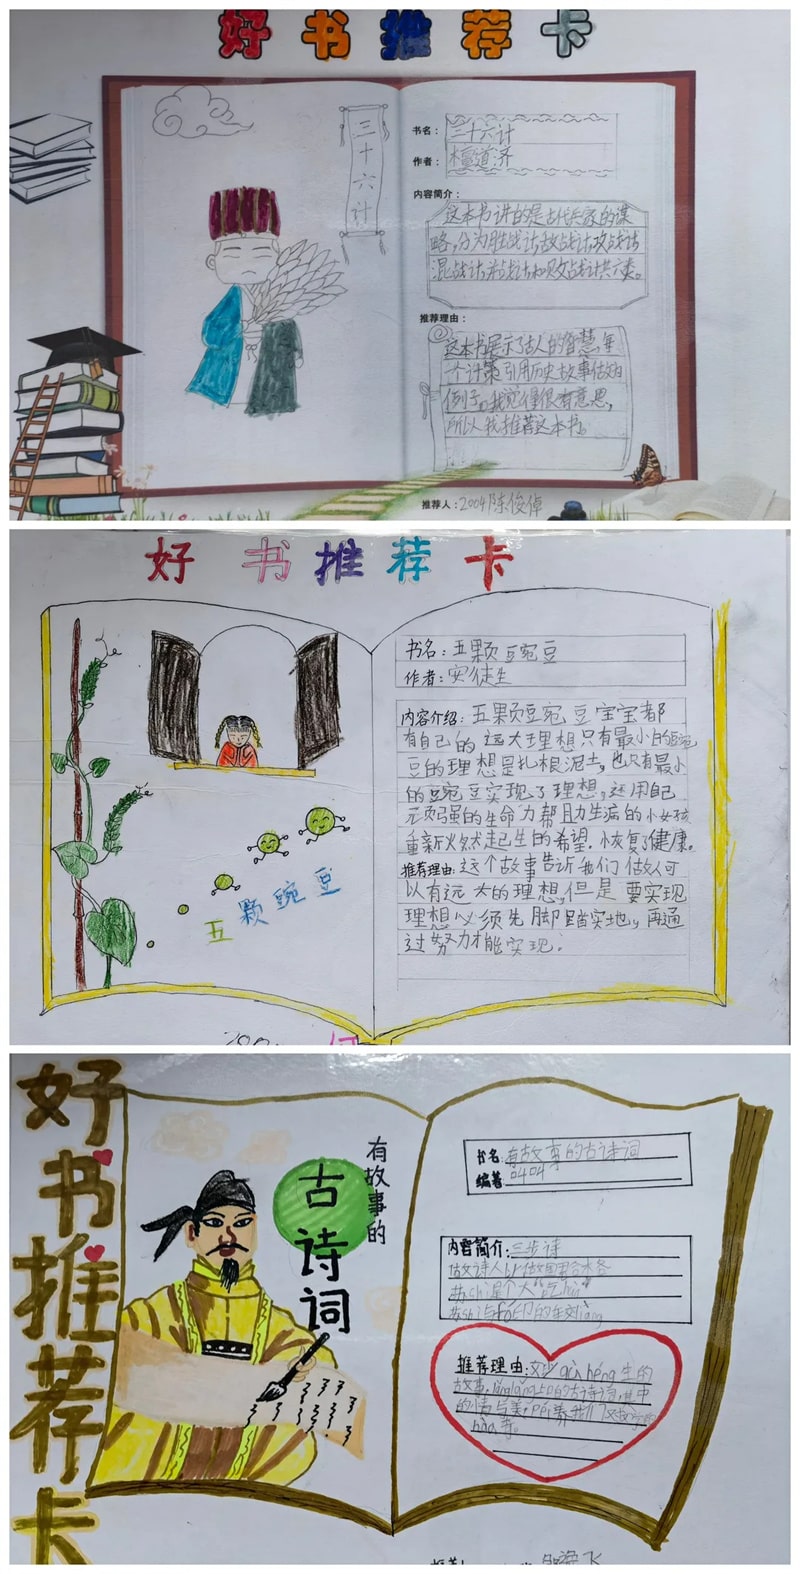 好书推荐卡
三十六计
书名：三十六计
作者：檀道济
内容简介：
这本书讲的是古代兵家的谋
略，分为胜战计，敌战计，攻战计，
混战计，并战计和败战计共六类。
推荐理由：
这本书展示了古人的智慧，每
个计策引用历史故事做为
例子。我觉得很有意思，
所以我推荐这本书。
推荐人：2004陈俊倬
好书推荐卡
五颗豌豆
书名：五颗豌豆
作者：安徒生
内容介绍：五颗豆豌豆宝宝都
有自己的远大理想只有最小的豌
豆的理想是扎根泥土，也只有最小
的豌豆实现了理想，还用自己
顽强的生命力帮助生病的小女孩
重新燃起生的希望，恢复了健康。
推荐理由：这个故事告诉我们做人可
以有远大的理想，但是要实现
理想必须先脚踏实地，再通
过努力才能实现。
好书推荐卡
有故事的
古诗词
书名 有故事的古诗词
编著 叩叩
内容简介：三步诗
做诗人
苏shi是个大"吃hù"
苏shi与
推荐理由：
故事，